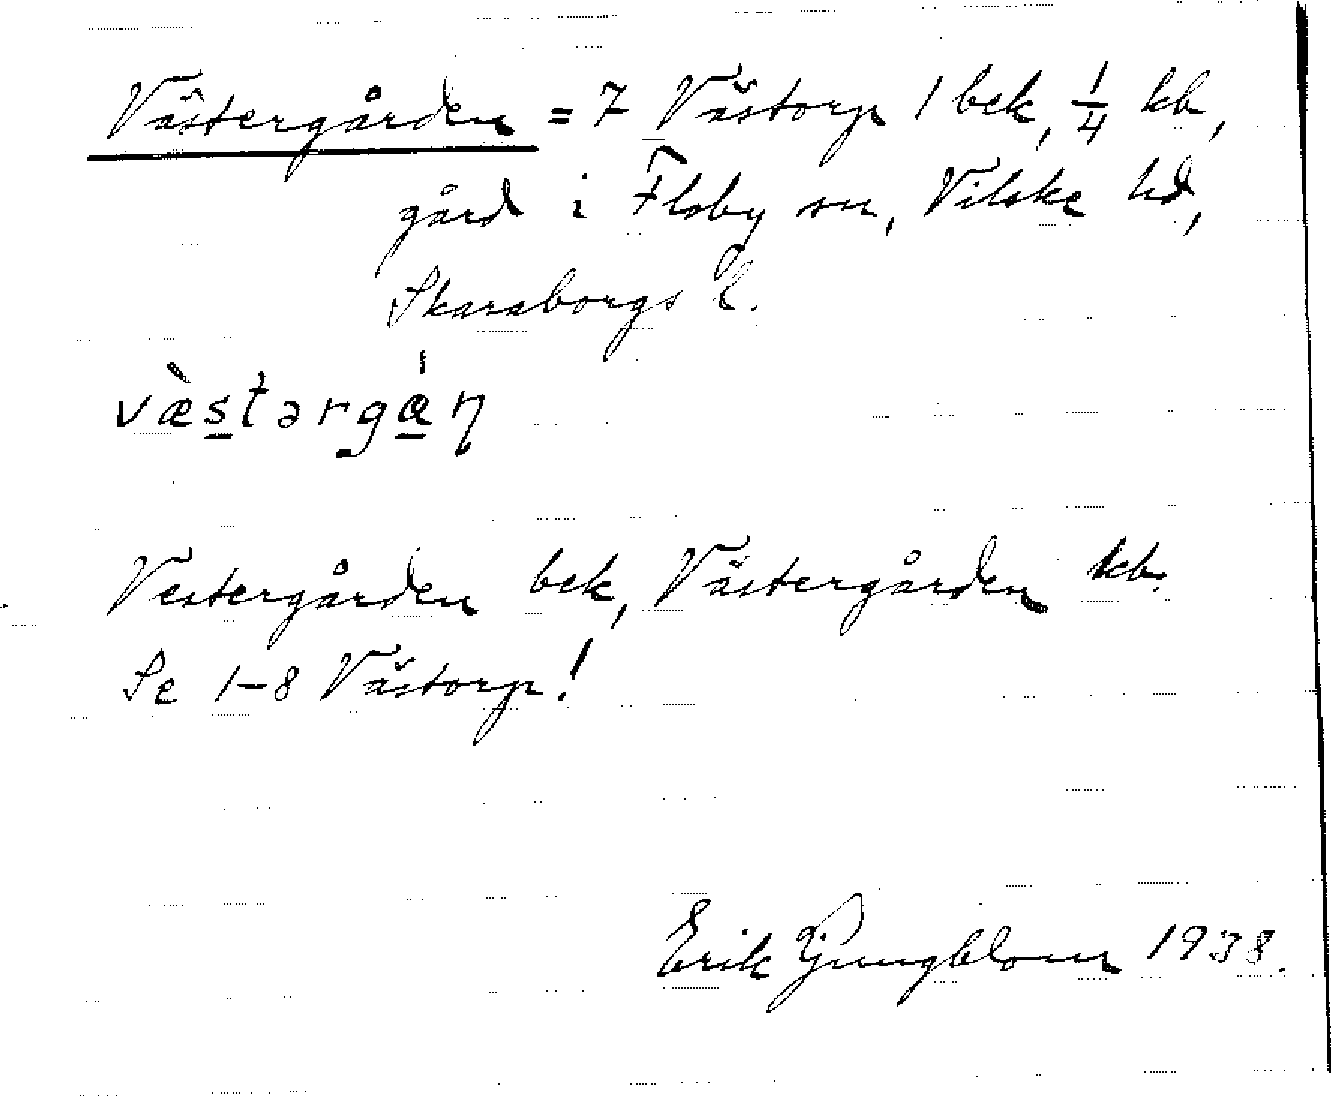 Västergården = 7 Västorp 1 bek, 1/4 kb,
gård i Floby sn, Vilske hd,
Skaraborgs l.
væ̀stərgǽn
Vestergården bek, Västergården kb.
Se 1-8 Västorp!
Erik Ljungblom 1938.